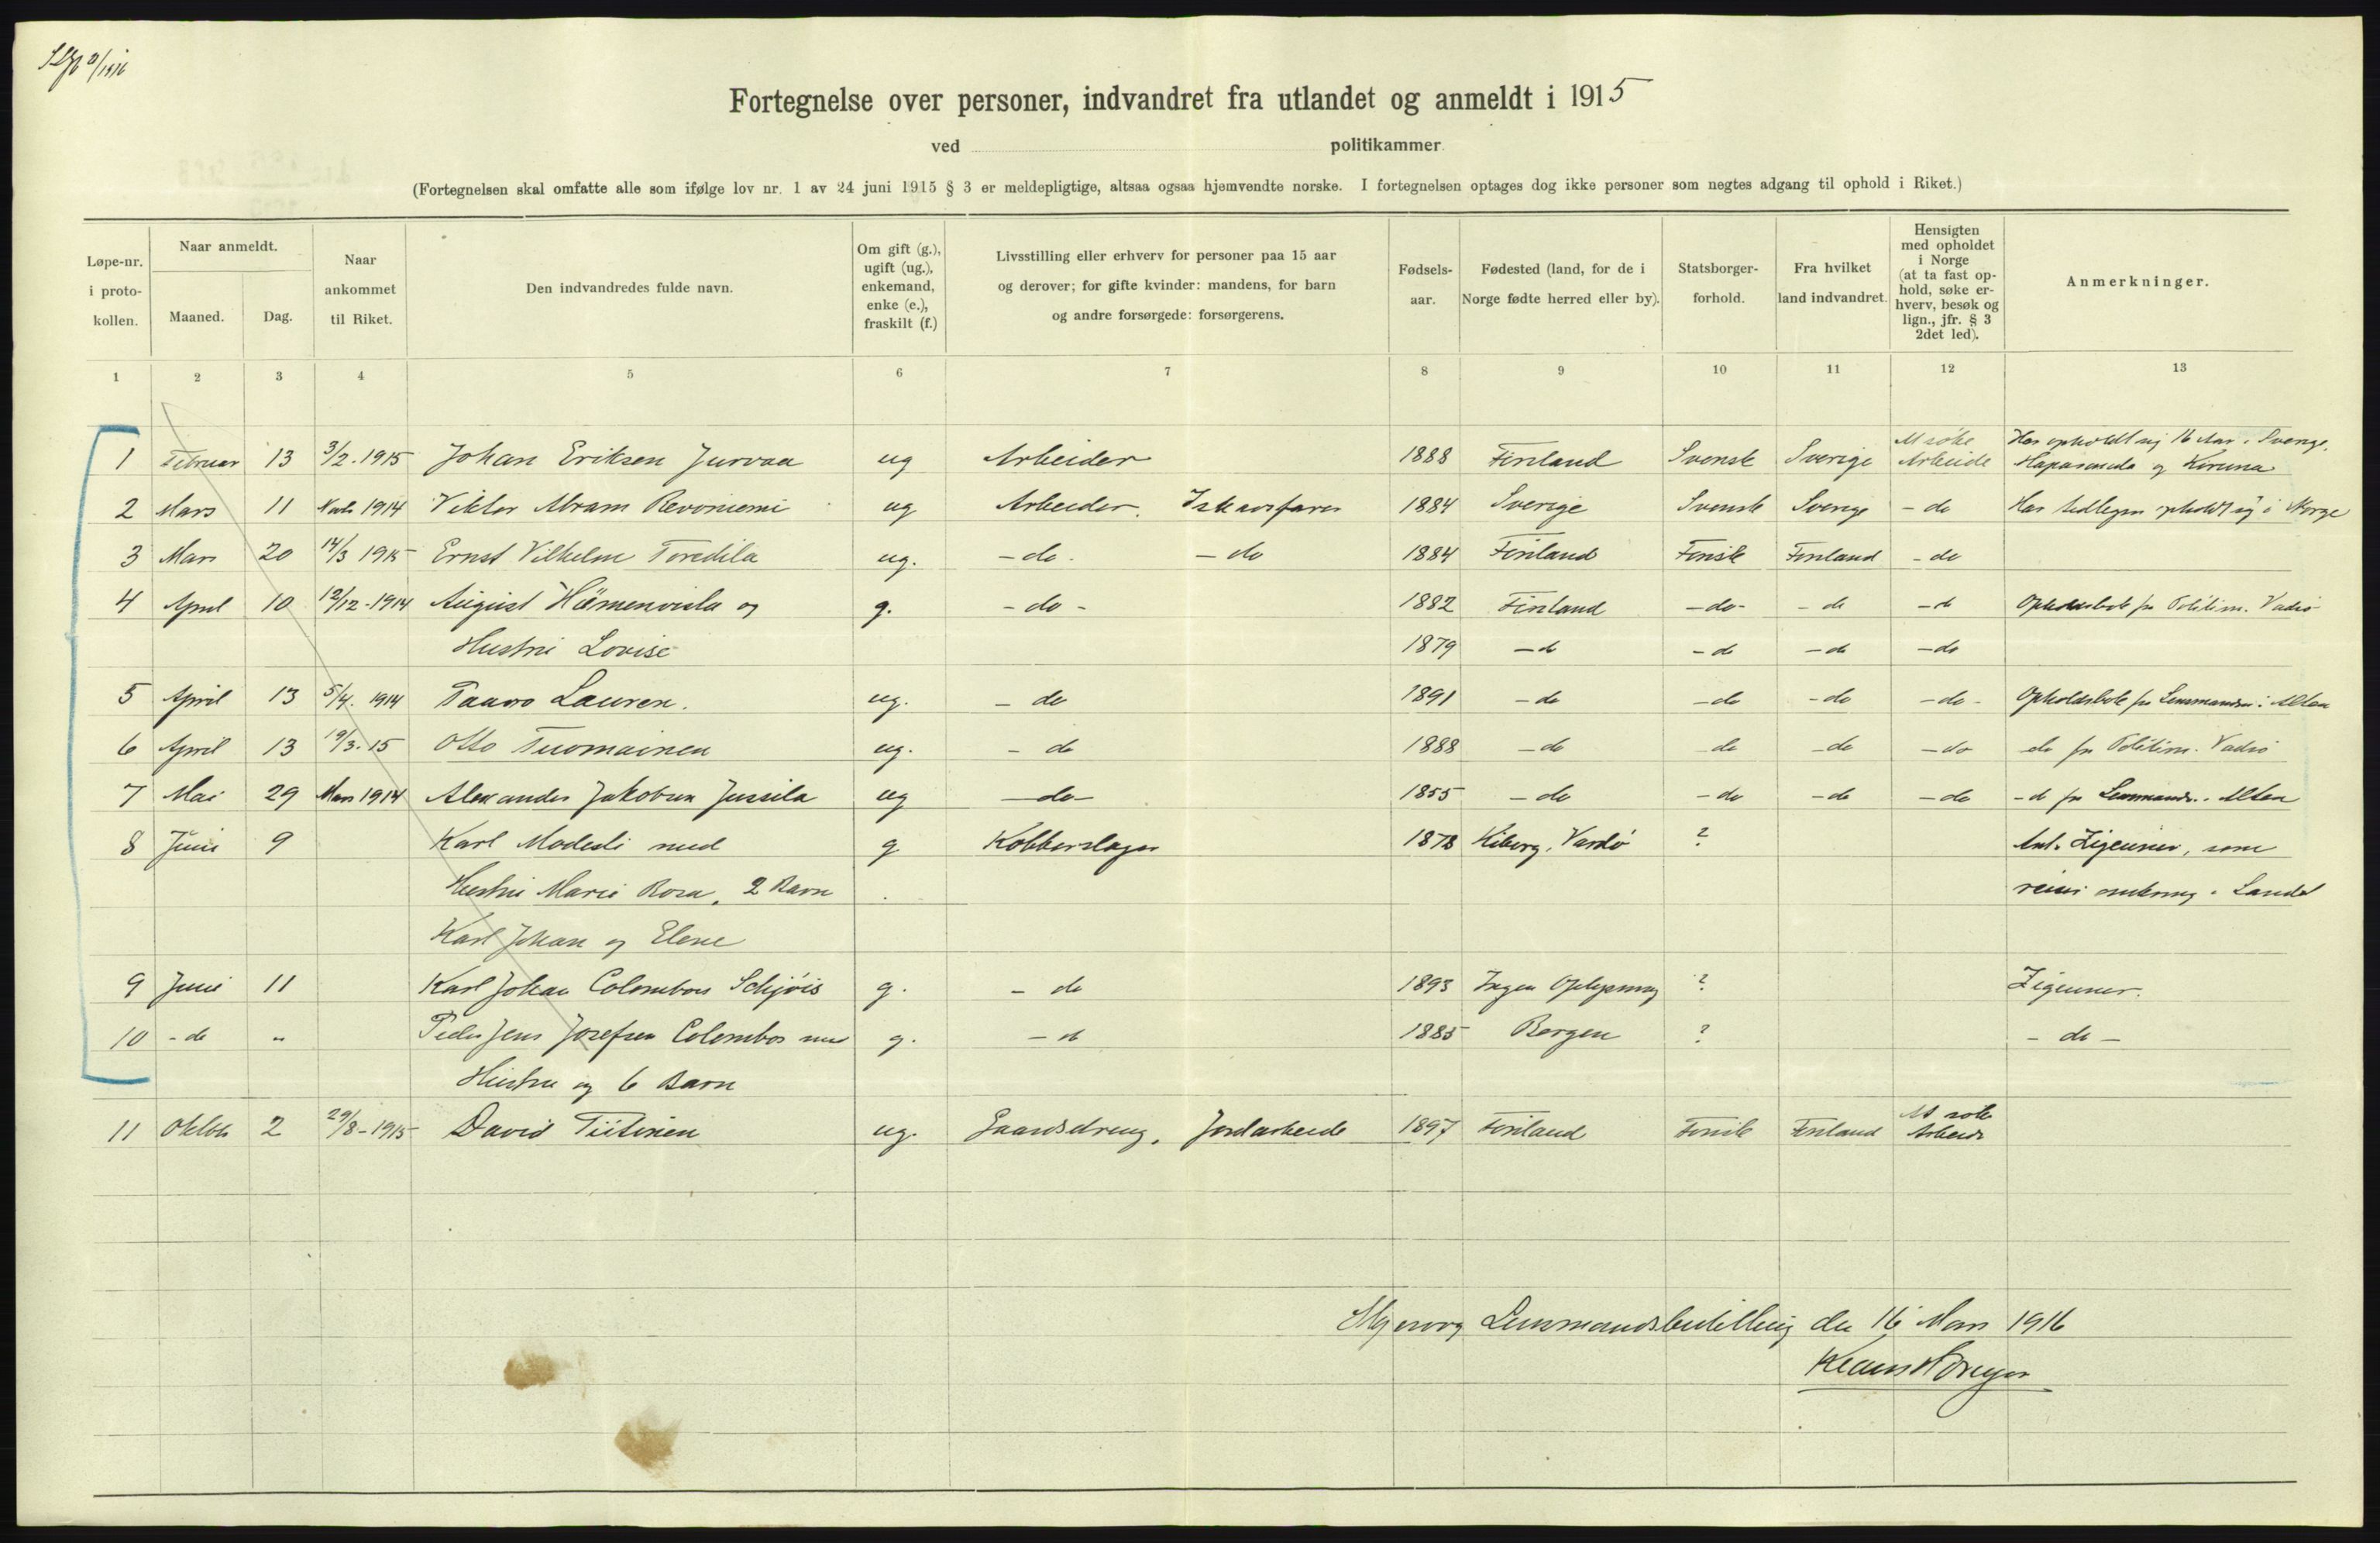 Fortegnelse over personer, indvandret fra utlandet og anmeldt i 1915
ved politikammer.
(Fortegnelsen skal omfatte alle som ifølge lov nr. 1 av 24 juni 1915 § 3 er meldepligtige, altsaa ogsaa hjemvendte norske. I fortegnelsen optages dog ikke personer som negtes adgang til ophold i Riket.)
Løpe-nr. i proto- kollen.
Naar anmeldt.
Maaned.
Dag.
Naar ankommet til Riket.
Den indvandredes fulde navn.
Om gift (g.), ugift (ug.), enkemand, enke (e.), fraskilt (f.)
Livsstilling eller erhverv for personer paa 15 aar og derover; for gifte kvinder: mandens, for barn og andre forsørgede: forsørgerens.
Fødsels- aar.
Fødested (land, for de i Norge fødte herred eller by).
Statsborger- forhold.
Fra hvilket land indvandret.
Hensigten med opholdet i Norge (at ta fast op- hold, søke er- hverv, besøk og lign., jfr. § 3 2det led).
Anmerkninger.
1 2 3 4 5 6 7 8 9 10 11 12 13
1 Februar 13 3/2. 1915 Johan Eriksen Jurvaa ug Arbeider 1888 Finland Svensk Sverige At søke Arbeide Har opholdt sig 16 Aar i Sverige, Haparanda og Kiruna
2 Mars 11 1914 Viktor Abram Revoniemi ug Arbeider. 1884 Sverige Svensk Sverige - do Har tidligere opholdt sig i Norge
3 Mars 20 14/3 1915 Ernst Vilhelm Toredila ug. - do - - do 1884 Finland Finsk Finland - do
4 April 10 12/12 - 1914 August og g. - do - 1882 Finland - do - - do - do Politim. Vadsø
Hustru Lovise 1879 - do - do - do - do
5 April 13 5/4. 1914 Paavo Lauren. ug. - do 1891 - do - do - do - do - Lensmanden i Alten
6 April 13 19/3. 15 Otto Tuomainen ug. - do 1888 - do do - do - do do fra Politim. Vadsø
7 Mai 29 Mars 1914 Alexander Jakobsen Jussila ug - do - 1855 - do - do - do - do - do fra Lensmand. i Alten
8 Juni 9 Karl Modesti med g Kobberslager 1878 Kiberg, Vardø ? Ant. Zigeuner, som
Hustru Marie Rosa, 2 Barn reiser omkring i Landet
Karl Johan og Elene
9 Juni 11 Karl Johan Colombos g. - do 1893 Ingen Oplysning ? Zigeuner.
10 - do " Peder Jens Josefsen Colombos med g. - do 1885 Bergen ? - do -
Hustru og 6 Barn
11 Oktob 2 29/8 - 1915 David Tiitinen ug. Gaardsdreng, Jordarbeide 1897 Finland Finsk Finland At søke Arbeide
Lensmandsbestilling den 16 Mars 1916